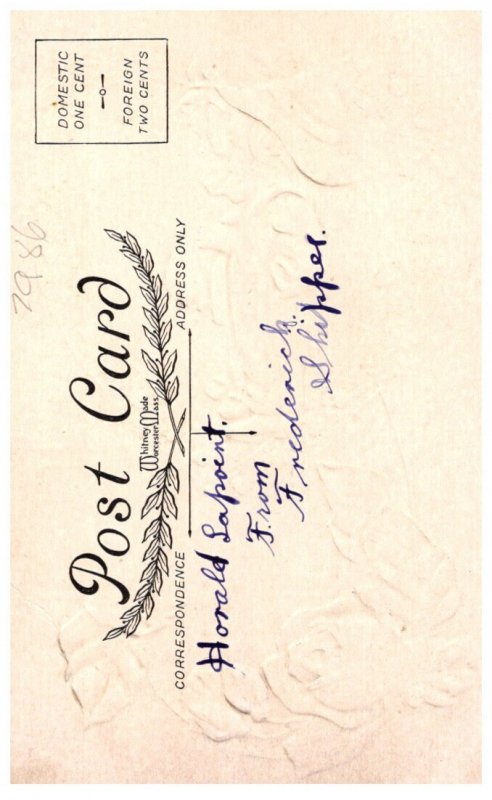 DOMESTIC
ONE CENT
FOREIGN
TWO CENTS
7986
Post Card
Whitney Made
Worcester Mass.
CORRESPONDENCE
ADDRESS ONLY
Horald Lapoint.
From
Frederick
Shippee.